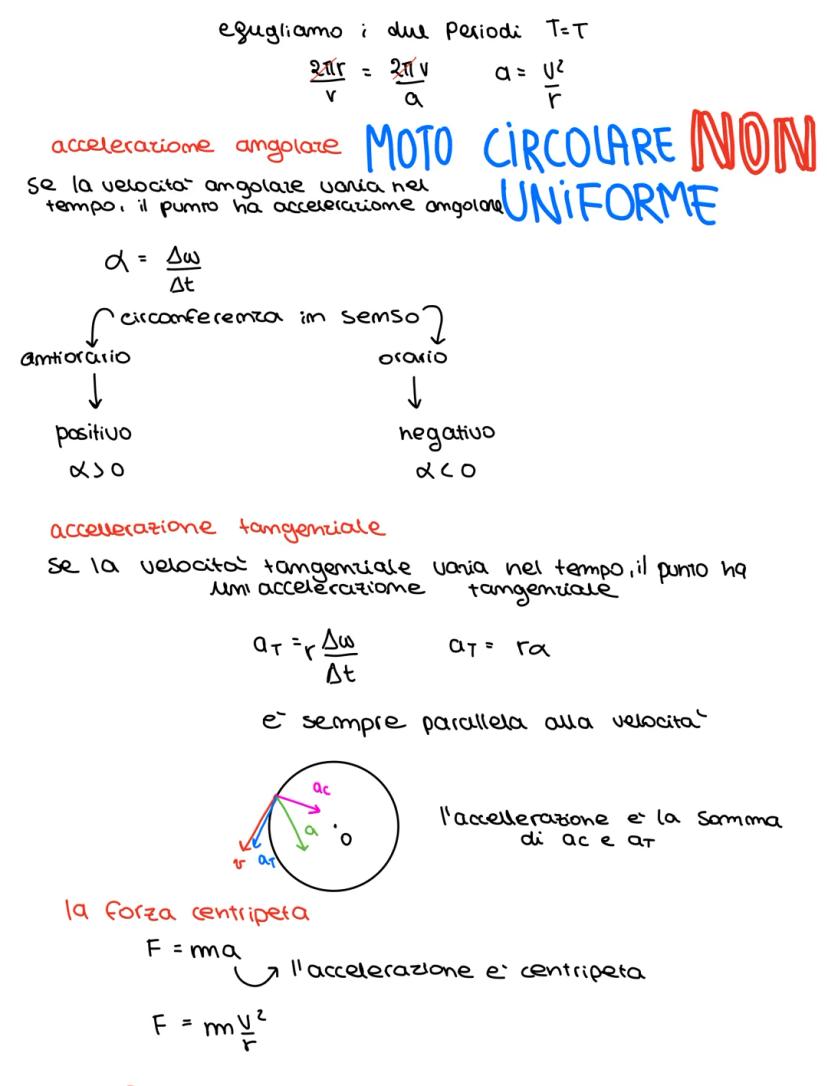 eguagliamo i due periodi T=T
2πr/v = 2πv/a a = v²/r
accelerazione angolare MOTO CIRCOLARE NON
UNIFORME
se la velocità angolare varia nel
tempo, il punto ha accelerazione angolare
α = Δω/Δt
circonferenza in senso
antiorario orario
positivo negativo
α>0 α<0
accellerazione tangenziale
se la velocità tangenziale varia nel tempo, il punto ha
un accelerazione tangenziale
aT = r Δω/Δt aT = rα
è sempre parallela alla velocità
ac
a
O
v aT
l'accellerazione è la somma
di ac e aT
la forza centripeta
F = ma
l'accelerazione è centripeta
F = m v²/r